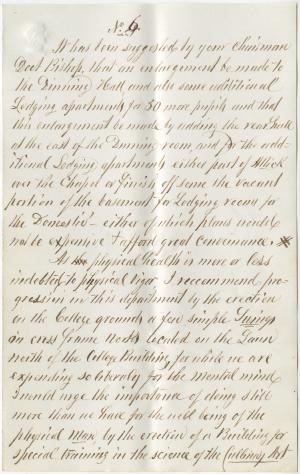 No. 6
It has been suggested by your Chairman
Doct Bishop, that an enlargement be made to
the Dinning Hall and also some additional
Lodging apartments for 50 more pupils and that
this enlargement be made by adding the rear
at the east of the Dinning room, and for the addi-
tional Lodging apartments either part of Attick
over the Chapel or finish off some the vacant
portion of the basement for Lodging room for
the Domestic – either of which plans would
not be expensive & afford great convenience,
As physical Health is more or less
indebted to physical vigor, I reccommend pro-
gression in this department by the erection
on the College grounds a few simple
in cross frame work located on the Lawn
north of the College Building, for while we are
expending so liberally for the mental mind
I would urge the importance of doing still
more than we have for the well being of the
physical Man, by the erection of a Building for
special training in the science of the Culinary Art